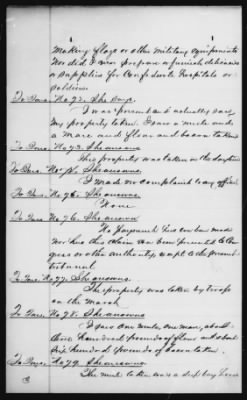 making flags or other military equipments
Nor did I ever prepare or furnish delicacies
or supplies for Confederate hospitals or
soldiers.
To Interr. No 72. She says.
I was present & actually saw
my property taken. I saw a mule and
a mare and flour and bacon taken
To Interr. No 73. She answers
This property was taken in the daytime
To Interr. No 74. She answers.
I made no complaint to any officer
To Interr. No 75. She answers.
None
To Interr. No 76. She answers
No Payment has ever been made
nor has this claim ever been presented to Congress
or other authority, except to the present
tribunal
To Interr. No 77. She answers.
The property was taken by troops
on the march
To Interr. No 78. She answers
I saw one mule, one mare, about
three hundred pounds of flour and about
six hundred pounds of bacon taken.
To Interr. No 79. She answers.
The mule taken was a dark bay horse